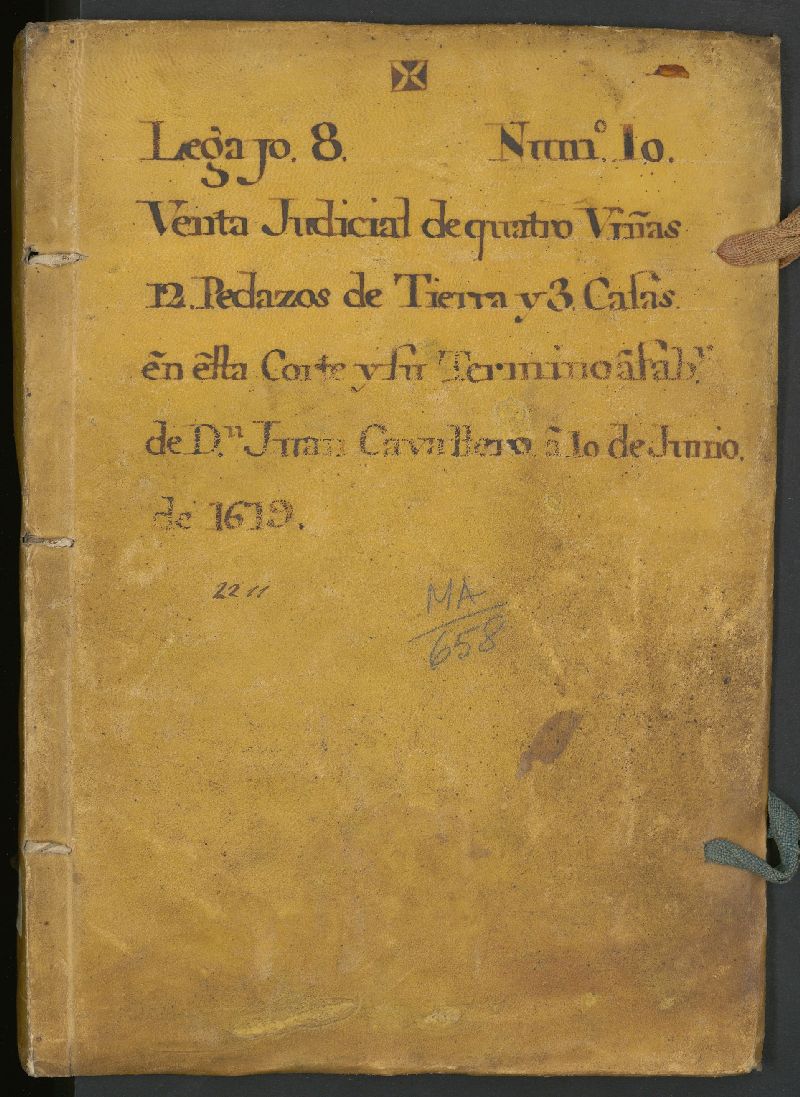 Legajo. 8. Num.º 10.
Venta Judicial de quatro Viñas
12. Pedazos de Tierra y 3. Casas.
en esta Corte y su Termino â fab.ʳ
de D.ⁿ Juan Cavallero. â 10 de Junio.
de 1619.
22 11
MA
658